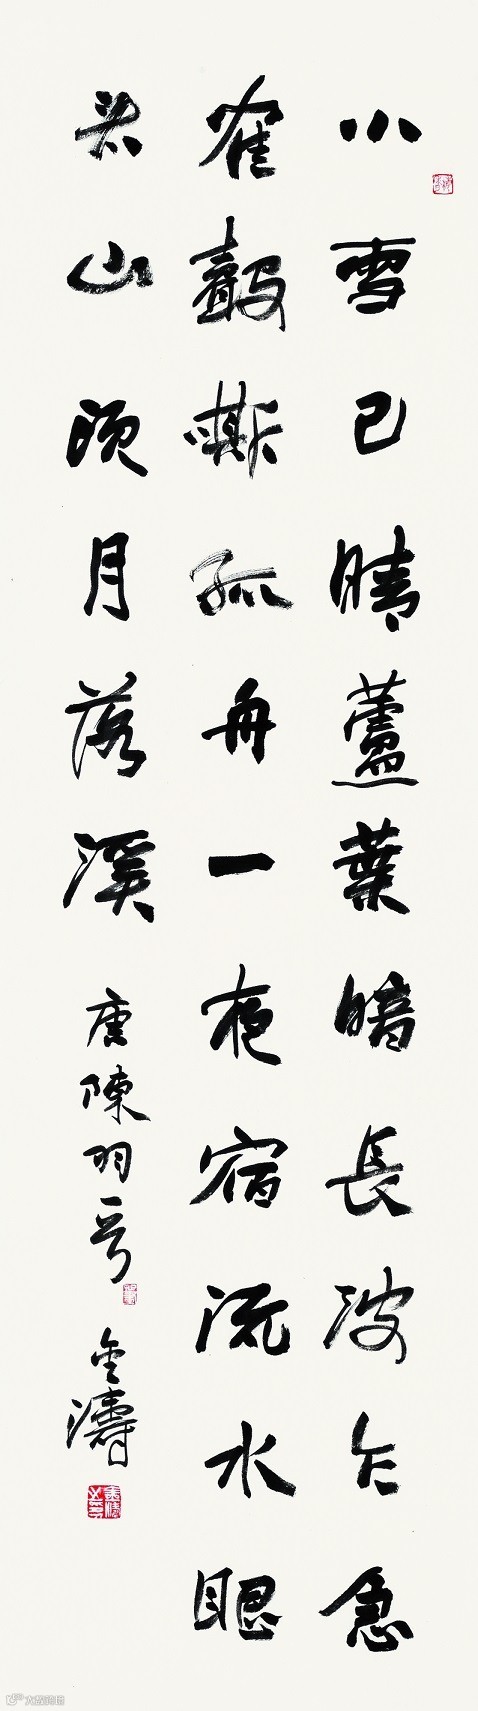 小雪已晴蘆葉暗長波乍急
寉聲嘶孤舟一夜宿流水眼
看山頭月落溪
唐陳羽
金濤